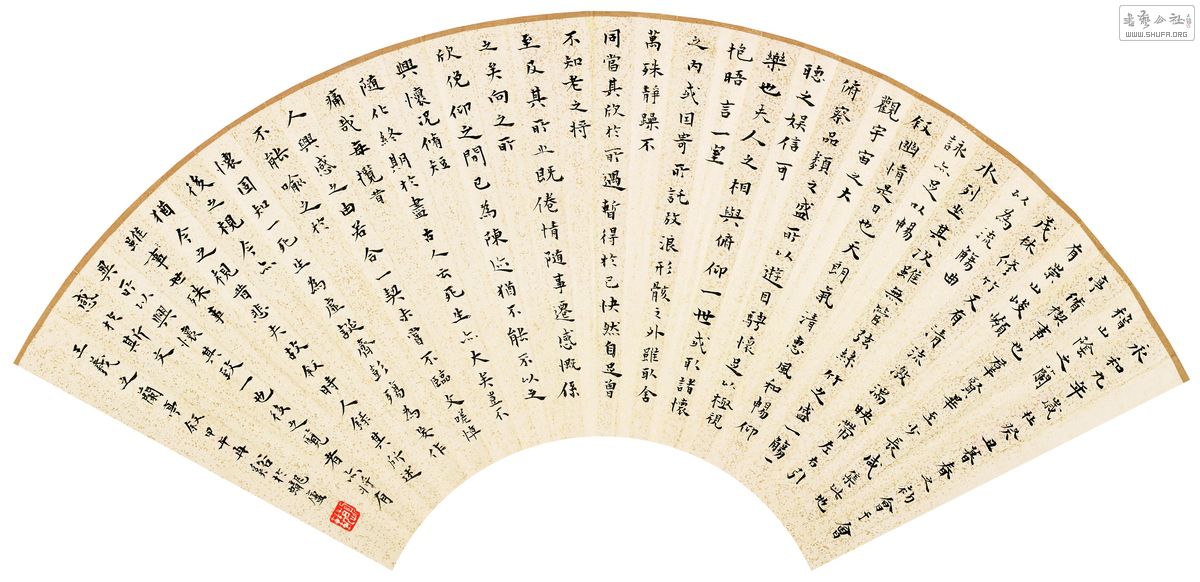 永和九年歲在癸丑暮春之初會于會
稽山陰之蘭
亭脩禊事也羣賢畢至少長咸集此地
有崇山峻領
茂林修竹又有清流激湍映帶左右引
以為流觴曲
水列坐其次雖無管弦絲竹之盛一觴一
詠亦足以暢
叙幽情是日也天朗氣清惠風和暢仰
觀宇宙之大
俯察品類之盛所以遊目騁懷足以極視
聽之娛信可
樂也夫人之相與俯仰一世或取諸懷
抱晤言一室
之內或因寄所託放浪形骸之外雖取舍
萬殊靜躁不
同當其欣於所遇暫得於己快然自足曾
不知老之將
至及其所之既倦情隨事遷感慨係
之矣向之所
欣俛仰之間已為陳迹猶不能不以之
興懷況脩短
隨化終期於盡古人云死生亦大矣豈不
痛哉每攬昔
人興感之由若合一契未嘗不臨文嗟悼
不能喻之於
懷固知一死生為虛誕齊彭殤為妄作
後之視今亦
猶今之視昔悲夫故叙時人錄其所述
雖世殊事
異所以興懷其致一也後之覽者亦將有
感於斯文
王羲之蘭亭叙 甲午冉於螺廬
WWW.SHUFA.ORG